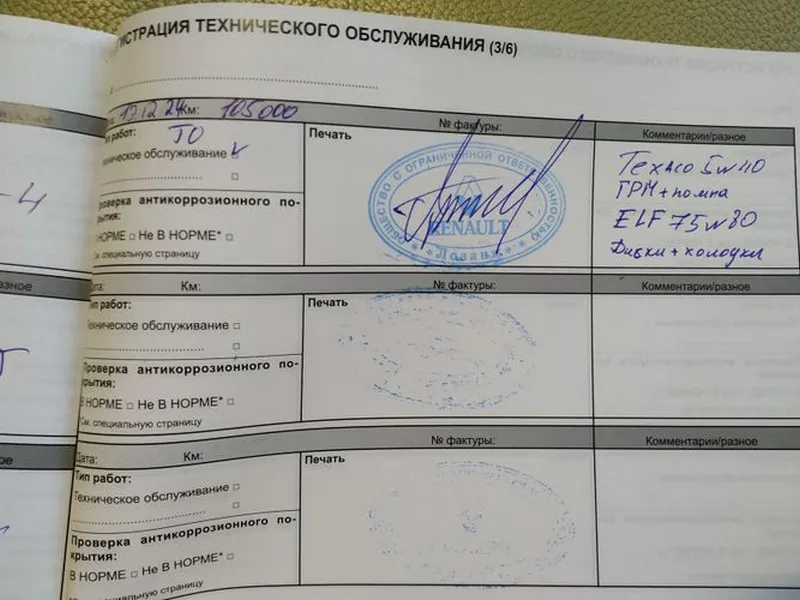 ИСТРАЦИЯ ТЕХНИЧЕСКОГО ОБСЛУЖИВАНИЯ (3/6)
13.12.24 Км: 105000 № фактуры: Комментарии/разное
работ: ТО
Печать
обслуживание
Проверка антикоррозионного по-
крытия:
НОРМЕ Не В НОРМЕ*
См. специальную страницу
ОБЩЕСТВО С ОГРАНИЧЕННОЙ ОТВЕТСТВЕННОСТЬЮ
RENAULT
Texaco 5w40
ГРМ + помпа
ELF 75w80
Диски + колодки
Дата: Км: № фактуры: Комментарии/разное
Тип работ:
Печать
Техническое обслуживание
Проверка антикоррозионного по-
крытия:
В НОРМЕ Не В НОРМЕ*
См. специальную страницу
Дата: Км: № фактуры: Комментарии/разное
Тип работ:
Печать
Техническое обслуживание
Проверка антикоррозионного по-
крытия:
В НОРМЕ Не В НОРМЕ*
специальную страницу